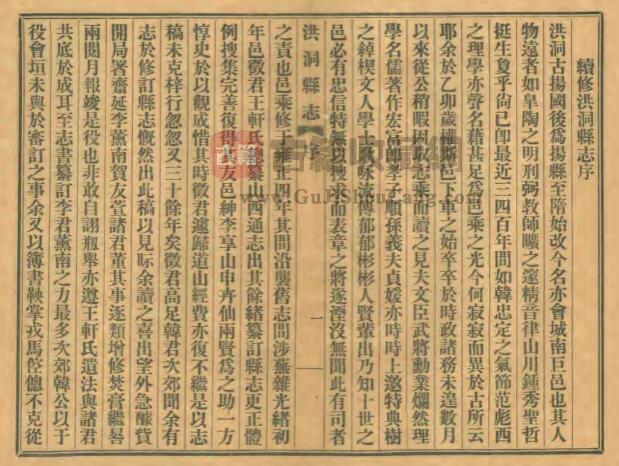 續修洪洞縣志序
洪洞古揚國後爲揚縣至隋始改今名亦會城南巨邑也其人
物遠者如皐陶之明刑弼敎師曠之邃精音律山川鍾秀聖哲
挺生夐乎尙已卽最近三四百年間如韓忠定之氣節范彪西
之理學亦聲名藉甚足爲邑乘之光今何寂寂而異於古所云
耶余於乙卯歲權斯邑下車之始卒卒於時政諸務未遑數月
以來從公稍暇因取志乘而讀之見夫文臣武將勳業爛然理
學名儒著作宏富卽孝子順孫義夫貞媛亦時時上邀特典樹
之綽楔文人學士歌咏流傳郁郁彬彬人賢輩出乃知十世之
邑必有忠信特無以搜求而表章之將遂湮沒無聞此有司者
洪洞縣志
序
一
之責也邑乘修于雍正四年其間沿襲舊志間涉蕪雜光緒初
年邑徵君王軒氏總纂山西通志出其餘緒纂訂縣志更正體
例搜集完善復得其友邑紳李享山申卉仙兩賢爲之助一方
惇史於以觀成惜其時徵君遽歸道山經費亦復不繼是以志
稿未克梓行忽忽又三十餘年矣徵君高足韓君次郊聞余有
志於修訂縣志慨然出此稿以見眎余讀之喜出望外急醵貲
開局署齋延李薰南賀友萱諸君董其事逐類增修焚膏繼晷
兩閱月報竣是役也非敢自詡瓶擧亦遵王軒氏遺法與諸君
共底於成耳至志書纂訂李君薰南之力最多次郊韓公以于
役會垣未與於審訂之事余又以簿書鞅掌戎馬倥傯不克從
古籍
www.GuJiShouCang.com